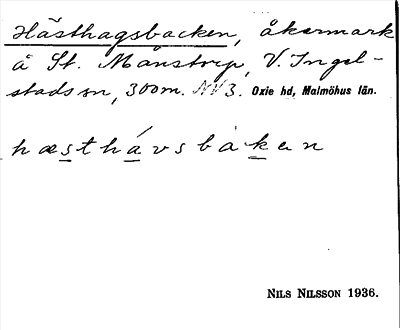 Hästhagsbacken, åkermark
å St. Månstrup, V. Ingel-
stads sn, 300m. NV 3. Oxie hd, Malmöhus län.
hæsthávsbàken
NILS NILSSON 1936.